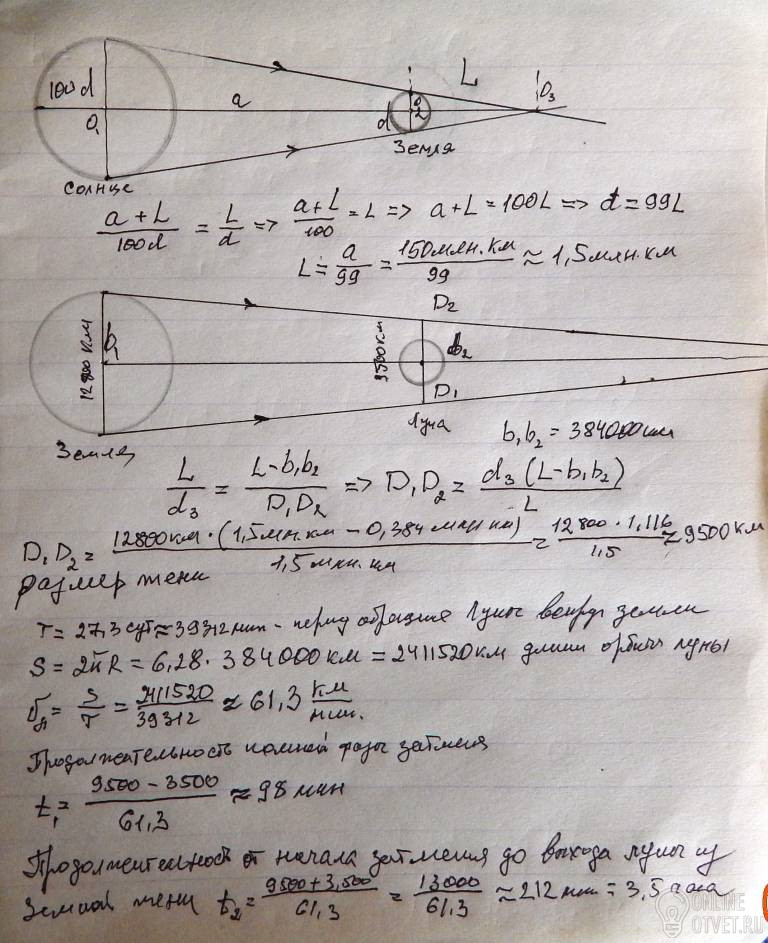 100d
a
L
O₁
O₂
O₃
d
Земля
Солнце
(a + L)/100d = L/d => (a+L)/100 = L => a + L = 100L => d = 99L
L = a/99 = 150 млн. км/99 ≈ 1,5 млн. км
D₂
12800 км
b₁
9500 км
b₂
D₁
Луна
b₁b₂ = 384000 км
Земля
L/d₃ = (L - b₁b₂)/D₁D₂ => D₁D₂ = d₃(L - b₁b₂)/L
D₁D₂ = 12800 км · (1,5 млн. км - 0,384 млн км)/1,5 млн. км = 12800 · 1,116/1,5 ≈ 9500 км
размер тени
T = 27,3 сут ≈ 39312 мин - период обращения Луны вокруг земли
S = 2πR = 6,28 · 384000 км = 2411520 км длина орбиты луны
υл = S/T = 2411520/39312 ≈ 61,3 км/мин.
Продолжительность полной фазы затмения
t₁ = (9500 - 3500)/61,3 ≈ 98 мин
Продолжительность от начала затмения до выхода луны из
земной тени t₂ = (9500 + 3,500)/61,3 = 13000/61,3 ≈ 212 мин = 3,5 часа
ONLINE
OTVET.RU